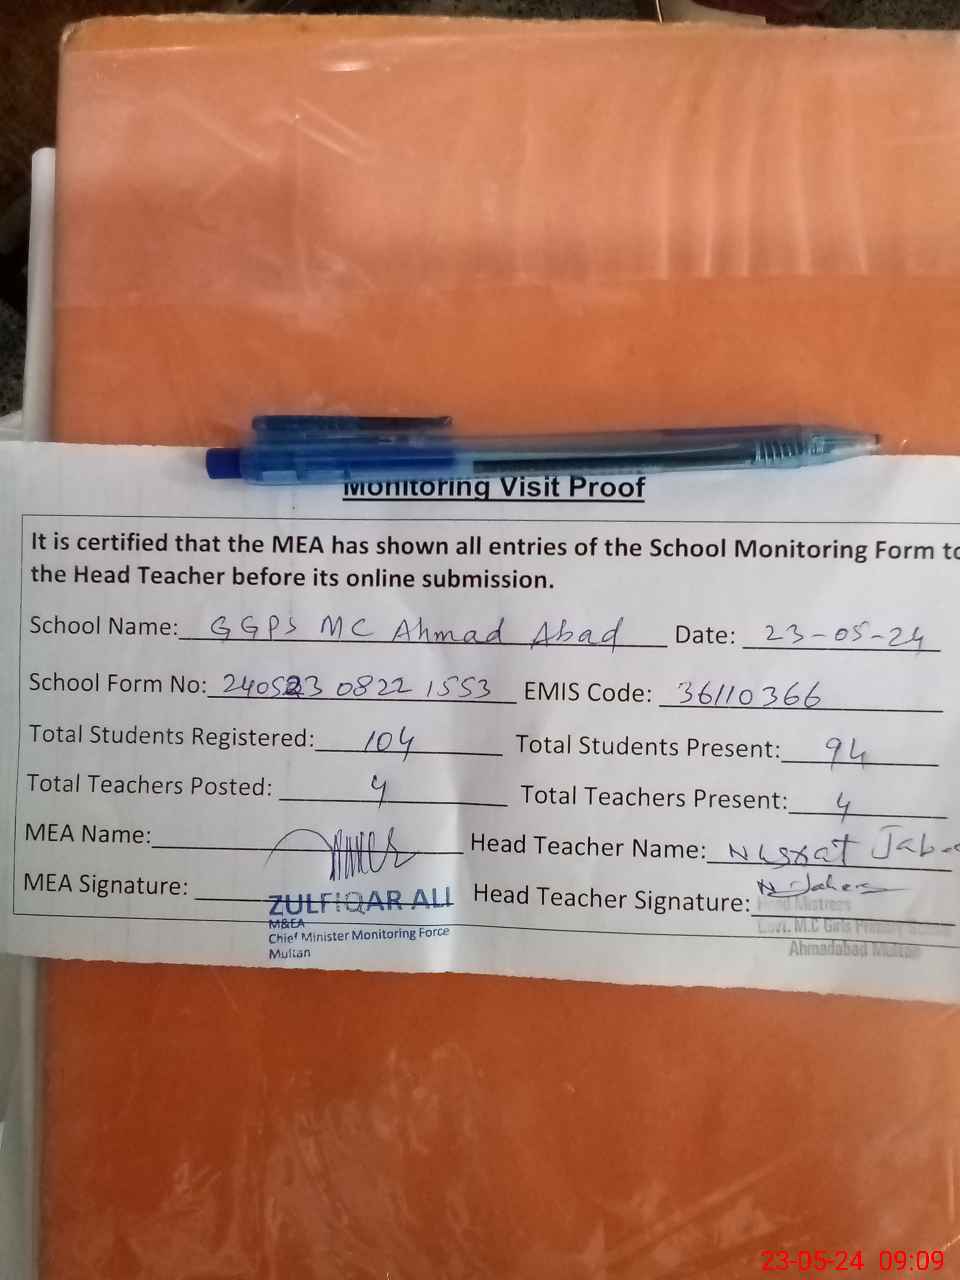 Monitoring Visit Proof
It is certified that the MEA has shown all entries of the School Monitoring Form to
the Head Teacher before its online submission.
School Name: GGPS MC Ahmad Abad Date: 23-05-24
School Form No: 240523 0822 1553 EMIS Code: 36110366
Total Students Registered: 104 Total Students Present: 94
Total Teachers Posted: 4 Total Teachers Present: 4
MEA Name: Head Teacher Name: Nusrat
MEA Signature: Head Teacher Signature:
ZULFIQAR ALI
M&EA
Chief Minister Monitoring Force
Multan
Head Mistress
Govt. M.C Girls Primary School
Ahmadabad Multan
23-05-24 09:09